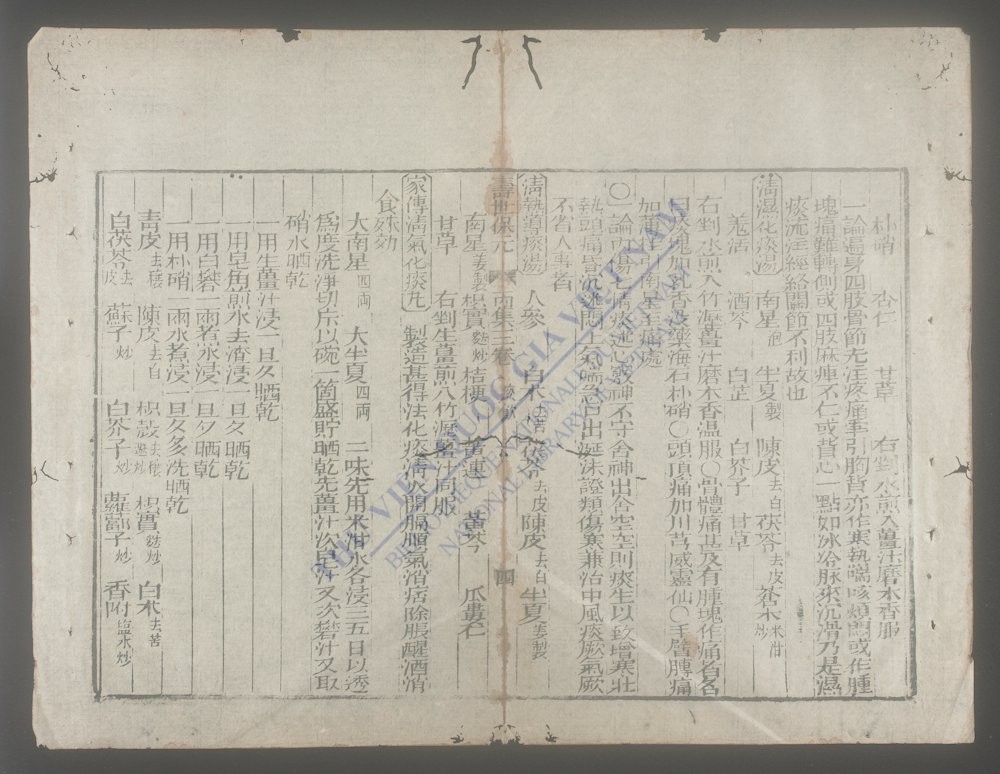 朴硝 杏仁 甘草 右剉水煎入薑汁磨木香服
一論遍身四肢骨節先注疼痛牽引胸背亦作寒熱喘咳煩悶或作腫
塊痛難轉側或四肢麻痺不仁或背心一點如冰冷脉來沉滑乃是濕
痰流注經絡關節不利故也
清濕化痰湯 南星炮 半夏製 陳皮去白 茯苓去皮 蒼朮米泔炒
羌活 酒芩 白芷 白芥子 甘草
右剉水煎入竹瀝薑汁磨木香温服〇骨體痛甚及有腫塊作痛者名
曰痰塊加乳香没藥海石朴硝〇頭頂痛加川芎威靈仙〇手臂膊痛
加薄桂引南星至痛處
〇一論內傷七情痰迷心竅神不守舍神出舍空空則痰生以致增寒壯
熱頭痛昏沉迷悶上氣喘急口出涎沫證類傷寒兼治中風痰厥氣厥
不省人事者
清熱導痰湯 人參 白朮去蘆 茯苓去皮 陳皮去白 半夏姜製
壽世保元 丙集三卷 痰飲 四
南星姜製 枳實麩炒 桔梗 黃連 黃芩 瓜蔞仁
甘草 右剉生薑煎入竹瀝薑汁同服
家傳清氣化痰丸 製造甚得法化痰清火開膈順氣消痞除脹醒酒消
食殊効
大南星四両 大半夏四両 二味先用米泔水各浸三五日以透
爲度洗淨切片以碗一箇盛貯晒乾先薑汁次皂汁又次礬汁又取
硝水晒乾
一用生薑汁浸一旦夕晒乾
一用皂角煎水去渣浸一旦夕晒乾
一用白礬一兩煮水浸一旦夕晒乾
一用朴硝一兩水煮浸一旦夕多洗晒乾
青皮去穰 陳皮去白 枳殼去穰麩炒 枳實麩炒 白朮去苦
白茯苓去皮 蘇子炒 白芥子炒 蘿蔔子炒 香附鹽水炒
THƯ VIỆN QUỐC GIA VIỆT NAM
BIBLIOTHÈQUE NATIONALE DU VIETNAM
NATIONAL LIBRARY OF VIETNAM